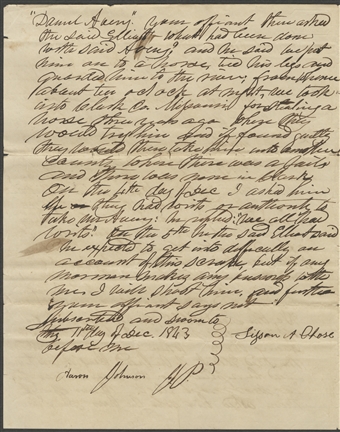 "Daniel Avery." your affiant then asked
the said Elliott what had been done
with said Avery? and he said we put
him on to a horse, tied his legs and
guarded him to the river, from whence
about ten oclock at night, we took
into Clark Co. Missouri for stealing a
horse three years ago where they
would try him and if found guilty
they would then take him into another
county where there was a jail
and there was none in
On the 4th day of Dec. I asked him
if they had writs or authority to
take Mr Avery: he replied: "we all had
writs". the 5th the said Elliott said
he expected to get into difficulty on
account of this scrape, but if any
mormon making any to
me, I will shoot him, and further
your affiant say not
and sworn to
11th day of Dec. 1843 Sisson A. Chase
before me
Aaron Johnson J P